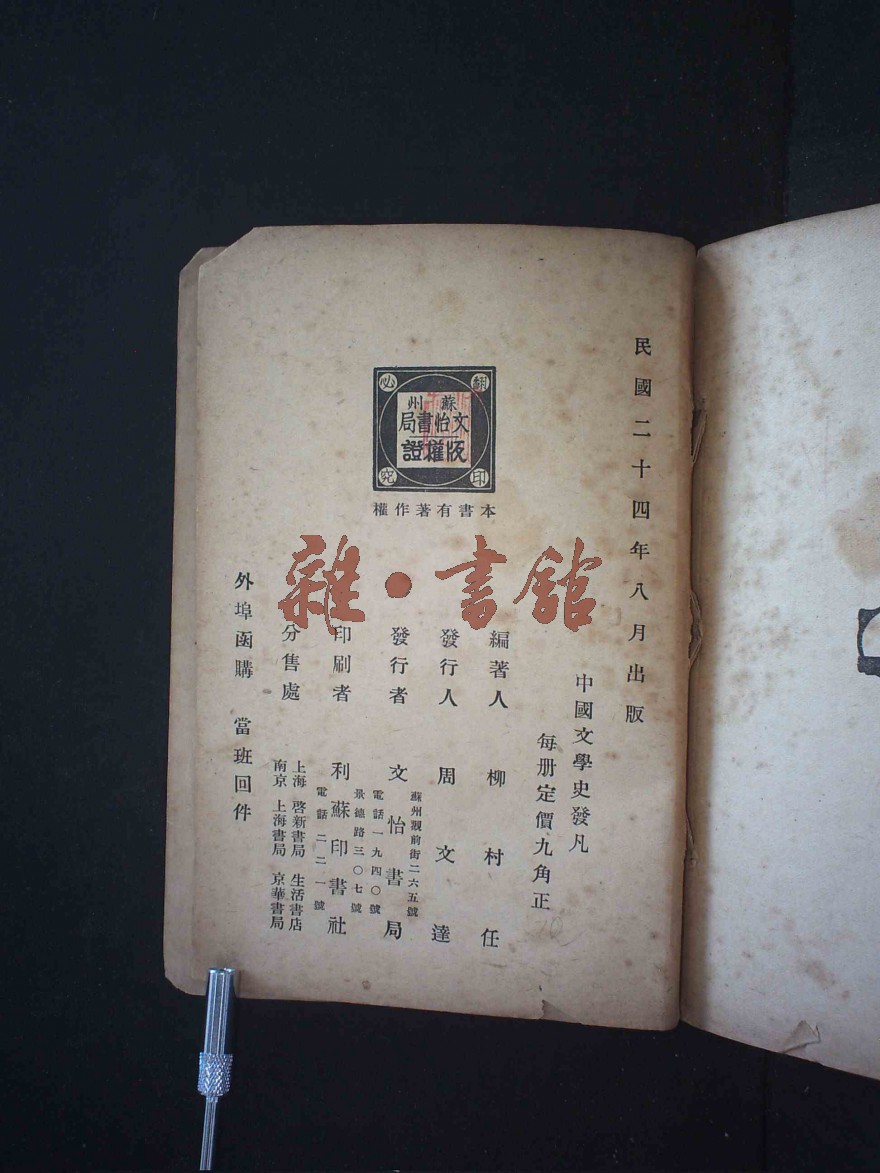 民國二十四年八月出版
中國文學史發凡
每册定價九角正
編著人 柳村任
發行人 周文達
蘇州觀前街二六五號
發行者 文怡書局
電話一九四〇號
景德路三〇七號
印刷者 利蘇印書社
電話二二一號
分售處
上海 啓新書局 生活書店
南京 上海書局 京華書局
外埠函購 當班回件
翻印必究
蘇州
文怡書局
版權證
本書有著作權
雜·書館